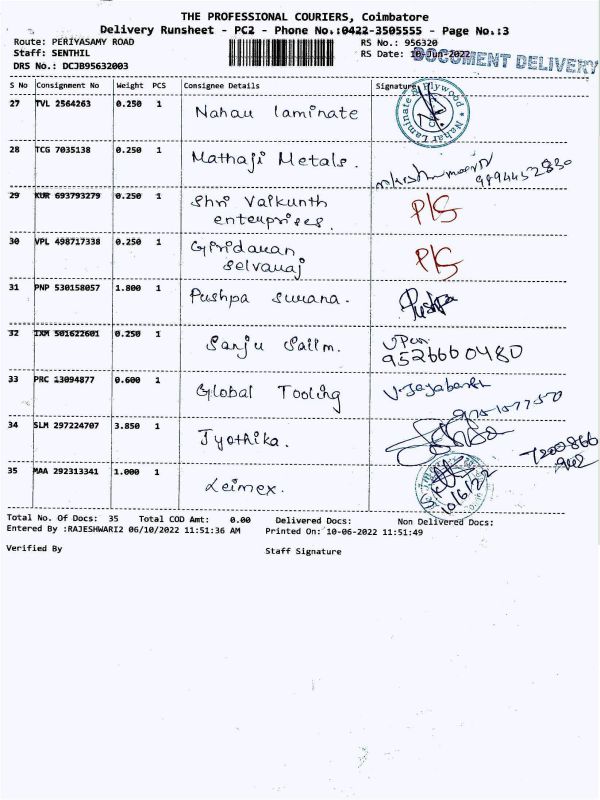 THE PROFESSIONAL COURIERS, Coimbatore
Delivery Runsheet - PC2 - Phone No.:0422-3505555 - Page No.:3
Route: PERIYASAMY ROAD
RS No.: 956320
Staff: SENTHIL
RS Date: 10-Jun-2022
DOCUMENT DELIVERY
DRS No.: DCJB95632003
S No Consignment No Weight PCS Consignee Details Signature
27 TVL 2564263 0.250 1 Nahau laminate
Nahar Laminate & Plywood
28 TCG 7035138 0.250 1 Mathaji Metals.
9894452830
29 KUR 693793279 0.250 1 Shri Vaikunth
enterprises.
P/S
30 VPL 498717338 0.250 1 Giridauan
Selvauaj
P/S
31 PNP 530158057 1.800 1 Pushpa Suuana. Pushpa
32 IXM 501622601 0.250 1 Sanju Sailm.
9526660480
33 PRC 13094877 0.600 1 Global Tooling V. Jayabarathi
34 SLM 297224707 3.850 1 Jyothika.
7200866
902
35 MAA 292313341 1.000 1 Leimex.
10/6/22
Total No. Of Docs: 35 Total COD Amt: 0.00 Delivered Docs: Non Delivered Docs:
Entered By :RAJESHWARI2 06/10/2022 11:51:36 AM Printed On: 10-06-2022 11:51:49
Verified By
Staff Signature